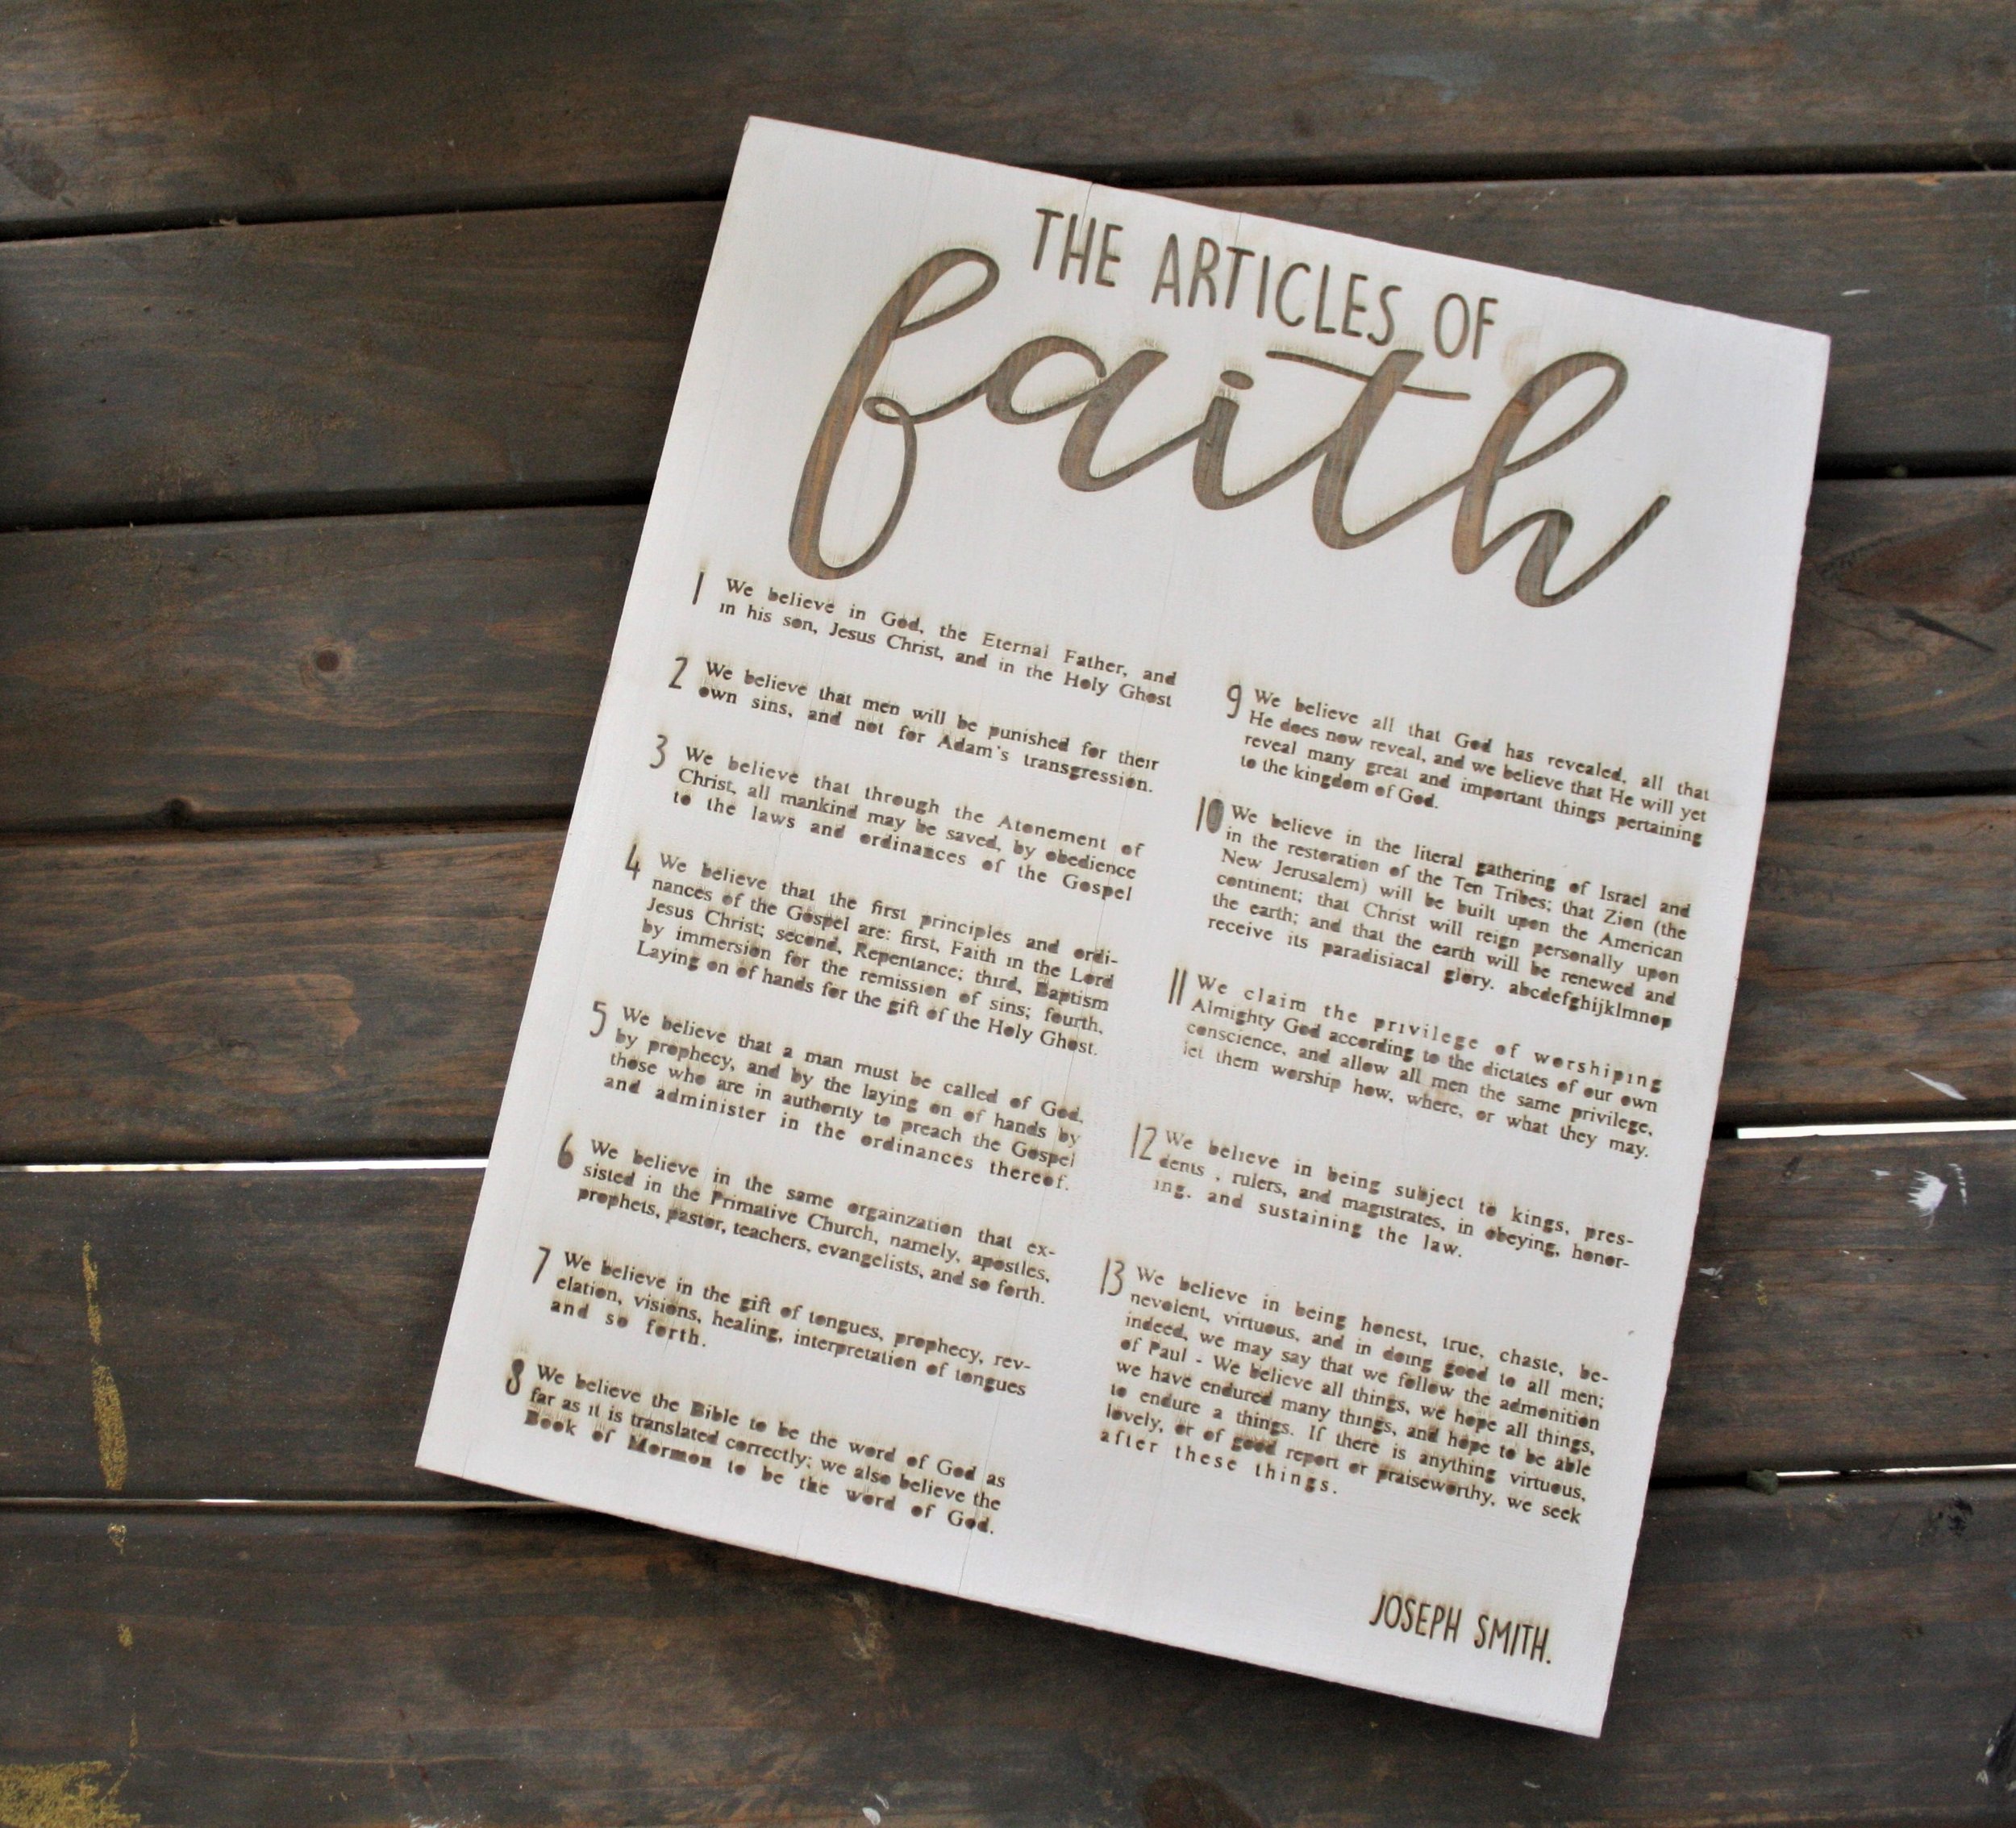 THE ARTICLES OF
faith
1 We believe in God, the Eternal Father, and
in his son, Jesus Christ, and in the Holy Ghost
2 We believe that men will be punished for their
own sins, and not for Adam's transgression.
3 We believe that through the Atonement of
Christ, all mankind may be saved, by obedience
to the laws and ordinances of the Gospel
4 We believe that the first principles and ordi-
nances of the Gospel are: first, Faith in the Lord
Jesus Christ; second, Repentance; third, Baptism
by immersion for the remission of sins; fourth,
Laying on of hands for the gift of the Holy Ghost.
5 We believe that a man must be called of God,
by prophecy, and by the laying on of hands by
those who are in authority to preach the Gospel
and administer in the ordinances thereof.
6 We believe in the same orgainzation that ex-
sisted in the Primative Church, namely, apostles,
prophets, pastor, teachers, evangelists, and so forth.
7 We believe in the gift of tongues, prophecy, rev-
elation, visions, healing, interpretation of tongues
and so forth.
8 We believe the Bible to be the word of God as
far as it is translated correctly; we also believe the
Book of Mormon to be the word of God.
9 We believe all that God has revealed, all that
He does now reveal, and we believe that He will yet
reveal many great and important things pertaining
to the kingdom of God.
10 We believe in the literal gathering of Israel and
in the restoration of the Ten Tribes; that Zion (the
New Jerusalem) will be built upon the American
continent; that Christ will reign personally upon
the earth; and that the earth will be renewed and
receive its paradisiacal glory. abcdefghijklmnop
11 We claim the privilege of worshiping
Almighty God according to the dictates of our own
conscience, and allow all men the same privilege,
let them worship how, where, or what they may.
12 We believe in being subject to kings, pres-
dents , rulers, and magistrates, in obeying, honor-
ing, and sustaining the law.
13 We believe in being honest, true, chaste, be-
nevolent, virtuous, and in doing good to all men;
indeed, we may say that we follow the admonition
of Paul - We believe all things, we hope all things,
we have endured many things, and hope to be able
to endure a things. If there is anything virtuous,
lovely, or of good report or praiseworthy, we seek
after these things.
JOSEPH SMITH.